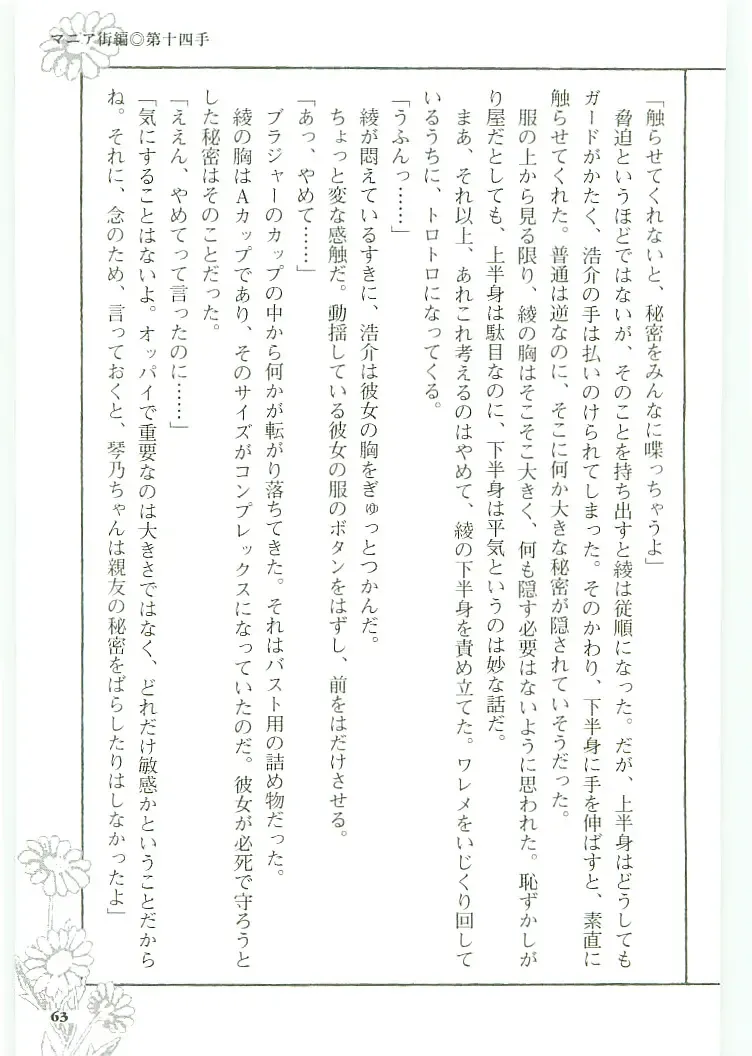 マニア街編◎第十四手
「触らせてくれないと、秘密をみんなに喋っちゃうよ」
脅迫というほどではないが、そのことを持ち出すと綾は従順になった。だが、上半身はどうしても
ガードがかたく、浩介の手は払いのけられてしまった。そのかわり、下半身に手を伸ばすと、素直に
触らせてくれた。普通は逆なのに、そこに何か大きな秘密が隠されていそうだった。
服の上から見る限り、綾の胸はそこそこ大きく、何も隠す必要はないように思われた。恥ずかしが
り屋だとしても、上半身は駄目なのに、下半身は平気というのは妙な話だ。
まあ、それ以上、あれこれ考えるのはやめて、綾の下半身を責め立てた。ワレメをいじくり回して
いるうちに、トロトロになってくる。
「うふんっ……」
綾が悶えているすきに、浩介は彼女の胸をぎゅっとつかんだ。
ちょっと変な感触だ。動揺している彼女の服のボタンをはずし、前をはだけさせる。
「あっ、やめて……」
ブラジャーのカップの中から何かが転がり落ちてきた。それはバスト用の詰め物だった。
綾の胸はAカップであり、そのサイズがコンプレックスになっていたのだ。彼女が必死で守ろうと
した秘密はそのことだった。
「ええん、やめてって言ったのに……」
「気にすることはないよ。オッパイで重要なのは大きさではなく、どれだけ敏感かということだから
ね。それに、念のため、言っておくと、琴乃ちゃんは親友の秘密をばらしたりはしなかったよ」
63